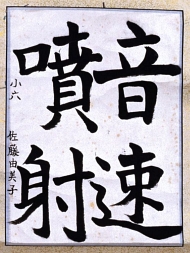 音速
噴射
小六 佐藤由美子